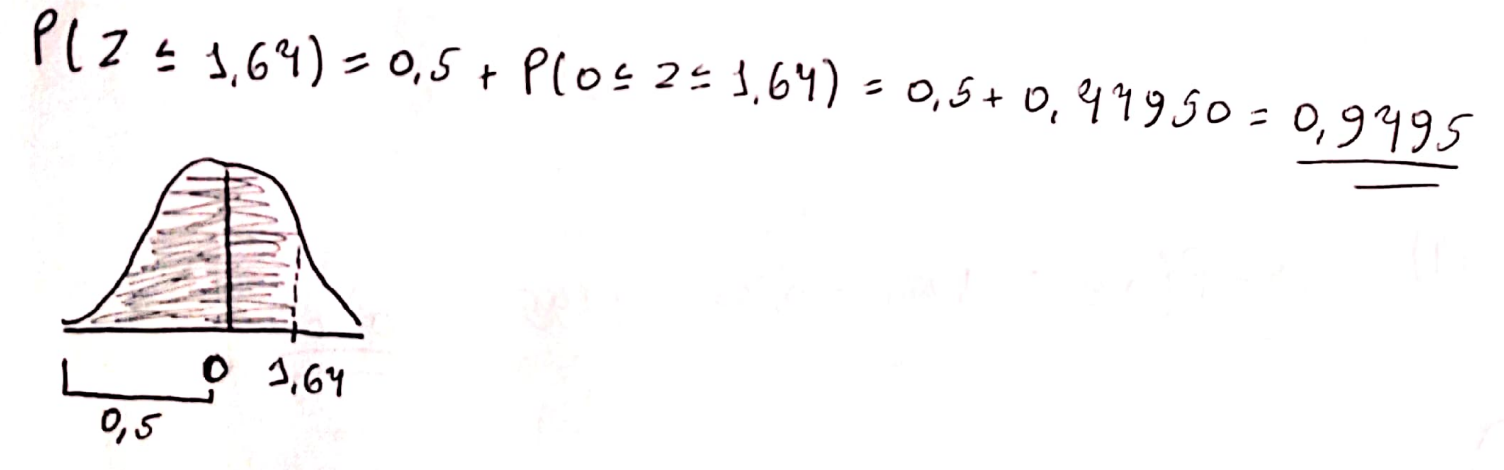 P(Z ≤ 1,64) = 0,5 + P(0 ≤ Z ≤ 1,64) = 0,5 + 0,44950 = 0,9495
0 1,64
0,5